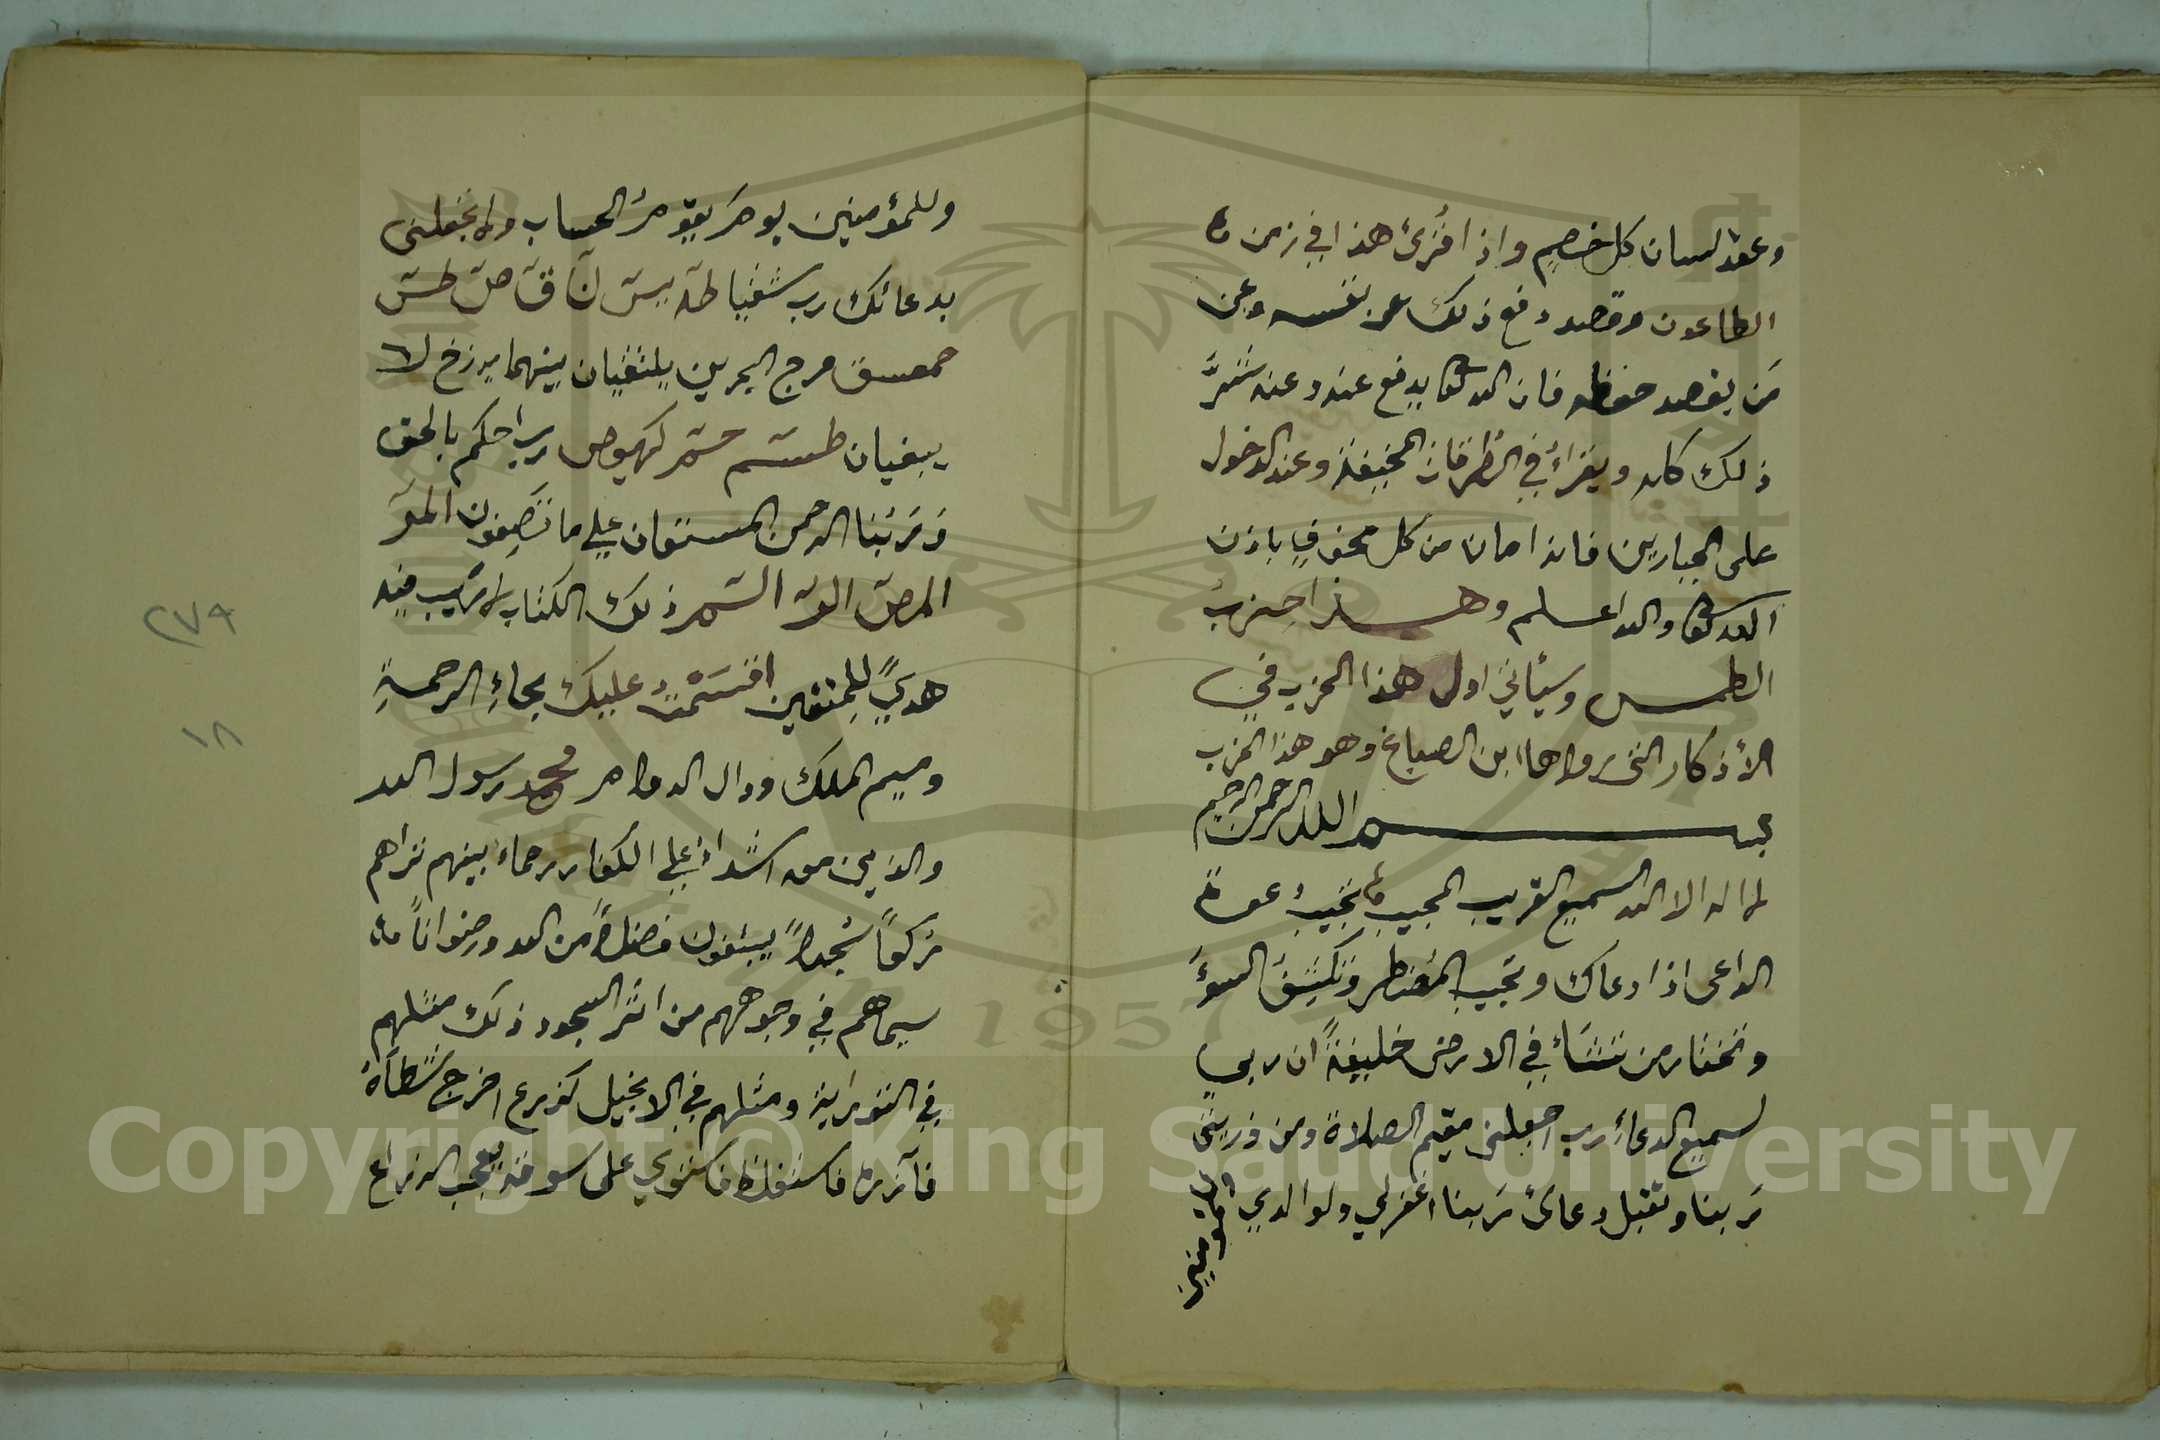 وعقد لسان كل خصم واذا قُرئ هذا في زمن
الطاعون وقصد دفع ذلك عن نفسه وعن
مَن يقصد حفظه فان الله تعا يدفع عنه وعنه شرَّ
ذلك كله ويقرأُ في الطُرقات المخيفة وعند الدخول
على الجبارين فانه امان من كل مخوف باذن
الله تعا والله اعلم وهذا حزب
الطمس وسيأتي اول هذا الحزب في
الأذكار التي رواها ابن الصباغ وهو هذا الحزب
بسم الله الرحمن الرحيم
لا اله الا الله السميع القريب المجيب تجيبُ دعوة
الداعى اذا دعاك وتجيب المُضطر وتكشِفُ السوءَ
وتختار من تشاءُ في الارض خليفةً ان ربي
لسميع الدعاءِ رب اجعلنى مقيم الصلاة ومن ذريتى
رَبنا وتقبل دعائ رَبنا اغفرلي ولوالدي
وللمؤمنين
وللمؤمنين يومَ يقومُ الحساب ولا تجعلنى
بدعائك رب شقيا طه يس ن ق ص طس
حمعسق مرج البحرين يلتقيان بينهما برزخ لا
يبغيان طسم حم كهيعص رب احكم بالحق
وَرَبُنا الرحمن المستعان على ما تَصِفون المر
المص الر الم ذلك الكتاب لا ريب فيه
هدىً للمتقين اقسَمْتُ عليك بحاءِ الرحمةِ
وميم الملك ودال الدوام محمد رسول الله
والذين معه اشداءُ على الكفار رحماءُ بينهم تراهم
رُكعاً سُجداً يبتغون فضلاً من الله ورضواناً
سيماهم في وجوههم من اثر السجود ذلك مثلهم
في التوراية ومثلهم في الانجيل كزرع اخرج شَطأَهُ
فآزره فاستغلظ فاستوي على سوقه يعجب الزراع
٢٧٩
١٨
Copyright © King Saud University
1957